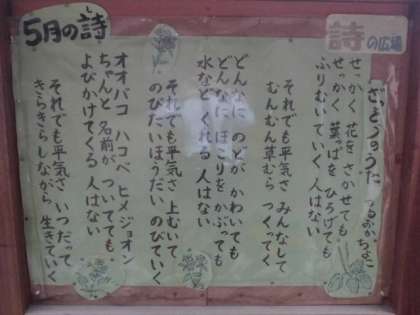 詩の広場
5月の詩
ざっそうのうた つるおかちよこ
せっかく 花を さかせても
せっかく 葉っぱを ひろげても
ふりむいていく 人はない
それでも平気さ みんなして
むんむん草むら つくってく
どんなに のどが かわいても
どんなに ほこりを かぶっても
水など くれる 人はない
それでも平気さ 上むいて
のびたいほうだい のびていく
オオバコ ハコベ ヒメジョオン
ちゃんと 名前が ついてても
よびかけてくる 人はない
それでも平気さ いつだって
きらきらしながら 生きていく